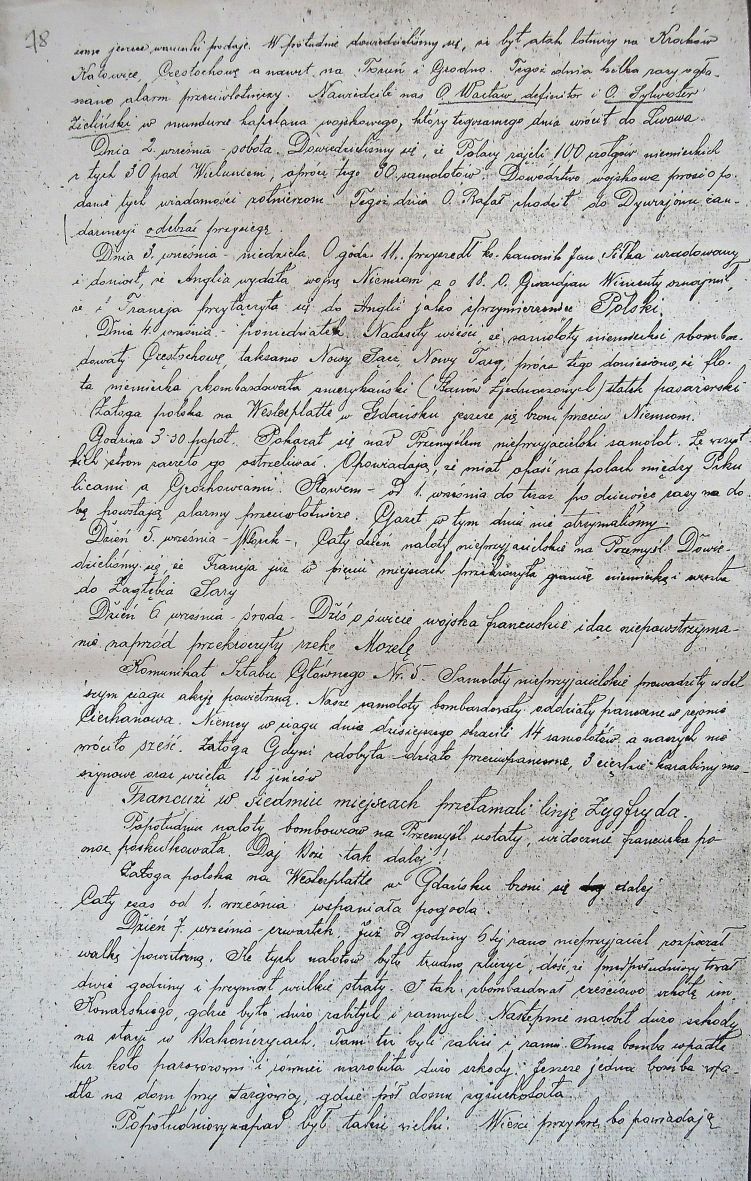 78
jeszcze warunki podaje. W południe dowiedzieliśmy się, że był atak lotniczy na Kraków
Katowice, Częstochowę a nawet na Toruń i Grodno. Tegoż dnia kilka razy ogła-
szano alarm przeciwlotniczy. Nawiedzili nas O. Wacław, definitor i O. Sylwester
Zieliński w mundurze kapelana wojskowego, który tegosamego dnia wrócił do Lwowa.
Dnia 2. września - sobota. Dowiedzieliśmy się, że Polacy zajęli 100 czołgów niemieckich
z tych 30 pod Wieluniem, oprócz tego 30 samolotów. Dowództwo wojskowe prosi o po-
danie tych wiadomości żołnierzom. Tegoż dnia O. Rafał chodził do Dywizjonu żan-
darmerji odebrać przysięgę.
Dnia 3. września - niedziela. O godz. 11. przyszedł ks. kanonik Jan uradowany
i doniósł, że Anglia wydała wojnę Niemcom a o 18. O. Gwardjan Wincenty oznajmił,
że i Francja przyłączyła się do Anglii jako sprzymierzeniec Polski.
Dnia 4. września - poniedziałek. Nadeszły wieści, że samoloty niemieckie zbombar-
dowały Częstochowę, taksamo Nowy Sącz, Nowy Targ, prócz tego doniesiono, że flo-
ta niemiecka zbombardowała amerykański (Stanów Zjednoczonych) statek pasażerski
Załoga polska na Westerplatte w Gdańsku jeszcze się broni przeciw Niemcom.
Godzina 3·30 popoł. Pokazał się nad Przemyślem nieprzyjacielski samolot. Ze wszyst-
kich stron zaczęto go ostrzeliwać. Opowiadają, że miał opaść na polach między Piku-
licami a Grochowcami. Słowem - od 1. września do teraz po dziewięć razy na do-
bę powstają alarmy przeciwlotnicze. Gazet w tym dniu nie otrzymaliśmy
Dzień 5. września - Wtorek -. Cały dzień naloty nieprzyjacielskie na Przemyśl. Dowie-
dzieliśmy się, że Francja już w pięciu miejscach przekroczyła granicę niemiecką i weszła
do Zagłębia Saary
Dzień 6 września - środa - Dziś o świcie wojska francuskie idąc niepowstrzyma-
nie naprzód przekroczyły rzekę Mozelę
Komunikat Sztabu Głównego Nr. 5. Samoloty nieprzyjacielskie prowadziły w dal-
szym ciągu akcję powietrzną. Nasze samoloty bombardowały oddziały pancerne w rejonie
Ciechanowa. Niemcy w ciągu dnia dzisiejszego stracili 14 samolotów, a naszych nie
wróciło sześć. Załoga Gdyni zdobyła działo przeciwpancerne, 3 ciężkie karabiny ma-
szynowe oraz wzięła 12 jeńców
Francuzi w siedmiu miejscach przełamali linję Zygfryda.
Popołudniu naloty bombowców na Przemyśl ustały, widocznie francuska po-
moc poskutkowała Daj Boże tak dalej!
Załoga polska na Westerplatte w Gdańsku broni się dalej
Cały czas od 1. września wspaniała pogoda.
Dzień 7. września - czwartek. Już od godziny 6 tej rano nieprzyjaciel rozpoczął
walkę powietrzną. Ile tych nalotów było trudno zliczyć, dość, że przedpołudniowy trwał
dwie godziny i przyniósł wielkie straty. I tak zbombardował częściowo szkołę im.
Konarskiego, gdzie było dużo zabitych i rannych. Następnie narobił dużo szkody
na stacji w Bakończycach. Tam też byli zabici i ranni. Inna bomba wpadła
tuż koło parowozowni i również narobiła dużo szkody; Jeszcze jedna bomba wpa-
dła na dom przy targowicy, gdzie pół domu zgruchotała
Popołudniowy napad był także wielki. Wieści przykre, bo powiadają